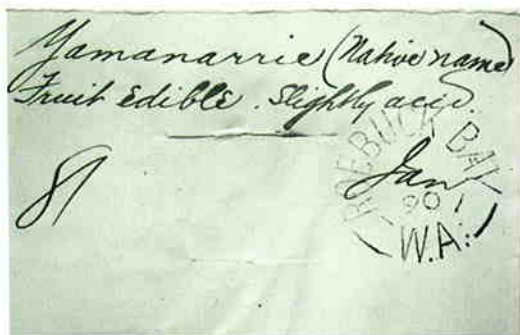 Yamanarrie (Native name)
Fruit edible. Slightly acid.
81 Jan
ROEBUCK BAY
901
W.A.